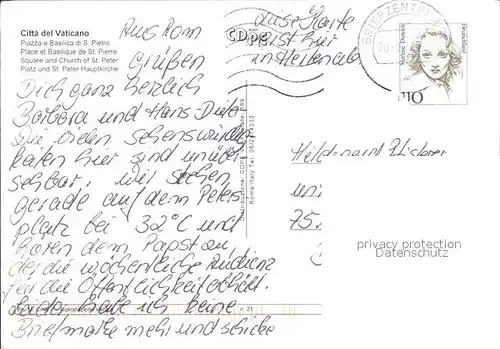 Città del Vaticano
Piazza e Basilica di S. Pietro
Place et Basilique de St. Pierre
Square and Church of St. Peter
Platz und St. Peter Hauptkirche
Aus Rom
grüßen
Dich ganz herzlich
Barbara und Hans-Dieter
Die vielen Sehenswürdig-
keiten hier sind unüber-
sehbar. wir stehen
gerade auf dem Peters-
platz bei 32°C und
hören dem Papst an,
der die wöchentliche Audienz
für die Öffentlichkeit abhält.
Leider habe ich keine
Briefmarke mehr und schicke
diese Karte
erst hier
in
CDPe
BRIEFZENTRUM
Marlene Dietrich
Deutschland
110
Roma-Italy Tel.
n. 21
75
privacy protection
Datenschutz